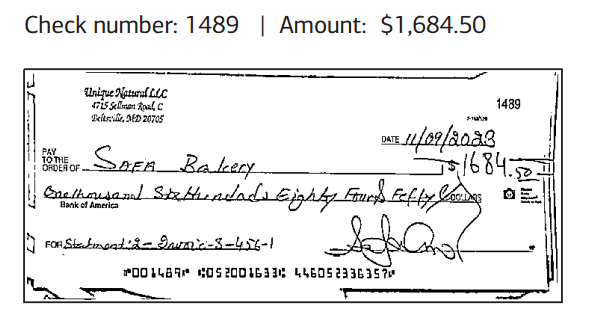 Check number: 1489 | Amount: $1,684.50
Unique Natural LLC
4715 Sellman Road, C
Beltsville, MD 20705
1489
DATE 11/09/2023
PAY
TO THE
ORDER OF SAFA Bakery $1684.50
Onethousand Eighty Four & Feffty DOLLARS
Bank of America
FOR Statment:2- Invoic-S-456-1
⑈001489⑈ ⑆052001633⑆ 446052336357⑈